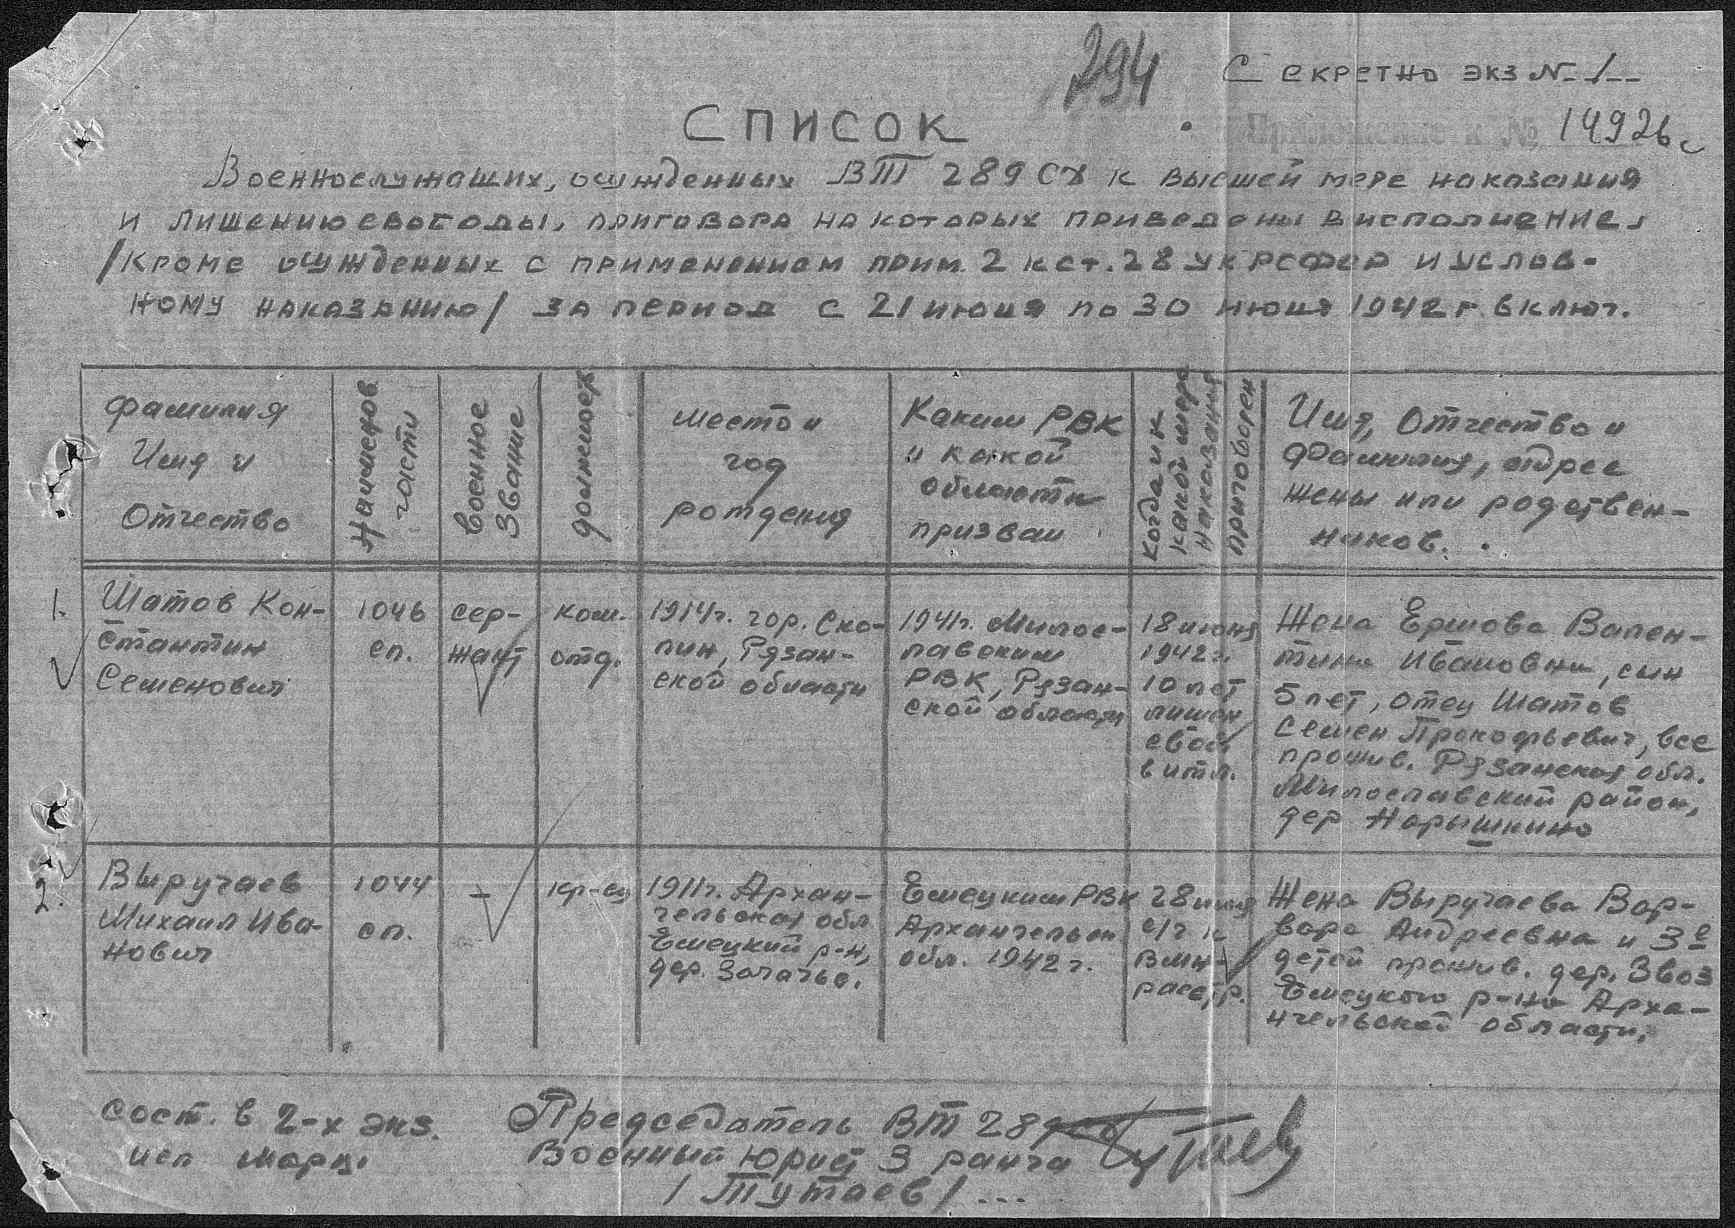 294
Секретно экз № 1
Приложение к № 1492бс
Список
Военнослужащих, осужденных ВТ 289 СД к высшей мере наказания
и лишению свободы, приговора на которых приведены в исполнение,
/кроме осужденных с применением прим. 2 к ст. 28 УК РСФСР и услов-
ному наказанию/ за период с 21 июня по 30 июня 1942 г. включ.
Фамилия
Имя и
Отчество
Наименов
части
Военное
звание
должность
место и
год
рождения
Каким РВК
и какой
области
призван
Когда и к
какой мере
наказания
приговорен
Имя, Отчество и
Фамилия, адрес
жены или родствен-
ников.
1.
Шатов Кон-
стантин
Семенович
1046
сп.
сер-
жант
ком.
отд.
1914г. гор. Ско-
пин, Рязан-
ской области
1941г. Милос-
лавским
РВК, Рязан-
ской области
18 июня
1942 г.
10 лет
лишен
своб
в итл.
Жена Ершова Вален-
тина Ивановна, сын
5 лет, отец Шатов
Семен Прокофьевич, все
прожив. Рязанская обл.
Милославский район,
дер Нарышкино
2.
Выручаев
Михаил Ива-
нович
1044
сп.
-
кр-ец
1911г. Архан-
гельская обл
Емецкий р-н,
дер. Зачачье.
Емецким РВК
Архангельск
обл. 1942 г.
28 июня
с/г к
ВМН-
расстр.
Жена Выручаева Вар-
вара Андреевна и 3е
детей прожив. дер. Звоз
Емецкого р-на Арха-
нгельской области.
сост. в 2-х экз.
исп
Председатель ВТ 289 сд
Военный юрист 3 ранга
/Тутаев/